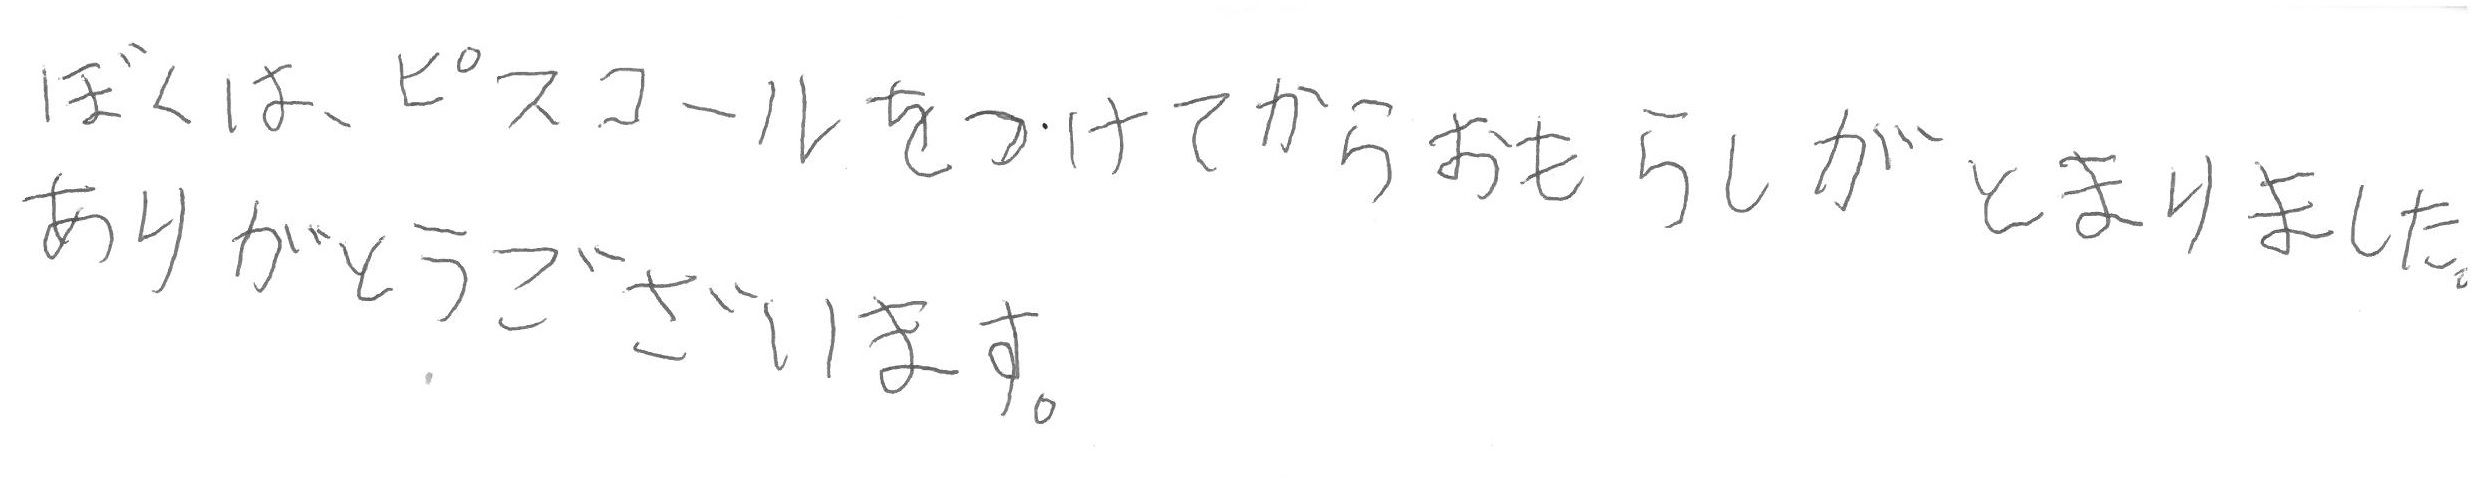 ぼくは、ピスコールをつけてからおもらしがとまりました。
ありがとうございます。